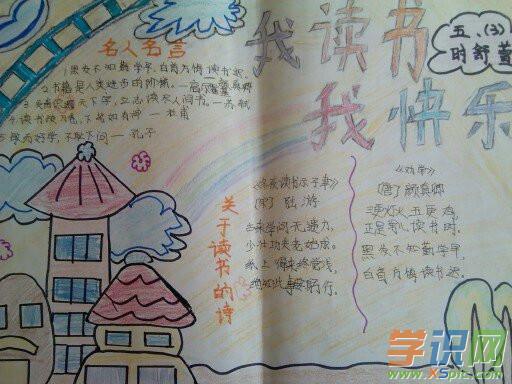 我读书
我快乐
五、(3)
时舒萱
名人名言
1黑发不知勤学早,白首方悔读书迟。
2.书籍是人类进步的阶梯。—高尔基 颜真卿
3.天下字,立志读尽人间书。—苏轼
4.读书破万卷,下笔如有神—杜甫
5学而好学,不耻下问—孔子
关于读书的诗
《冬夜读书示子聿》
[宋] 陆游
学问无遗力,
少壮功夫老始成。
纸上得来终觉浅,
绝知此事要躬行。
《劝学》
[唐] 颜真卿
三更灯火五更鸡,
正是男儿读书时,
黑发不知勤学早,
白首方悔读书迟。
学识网
www.XSpic.com